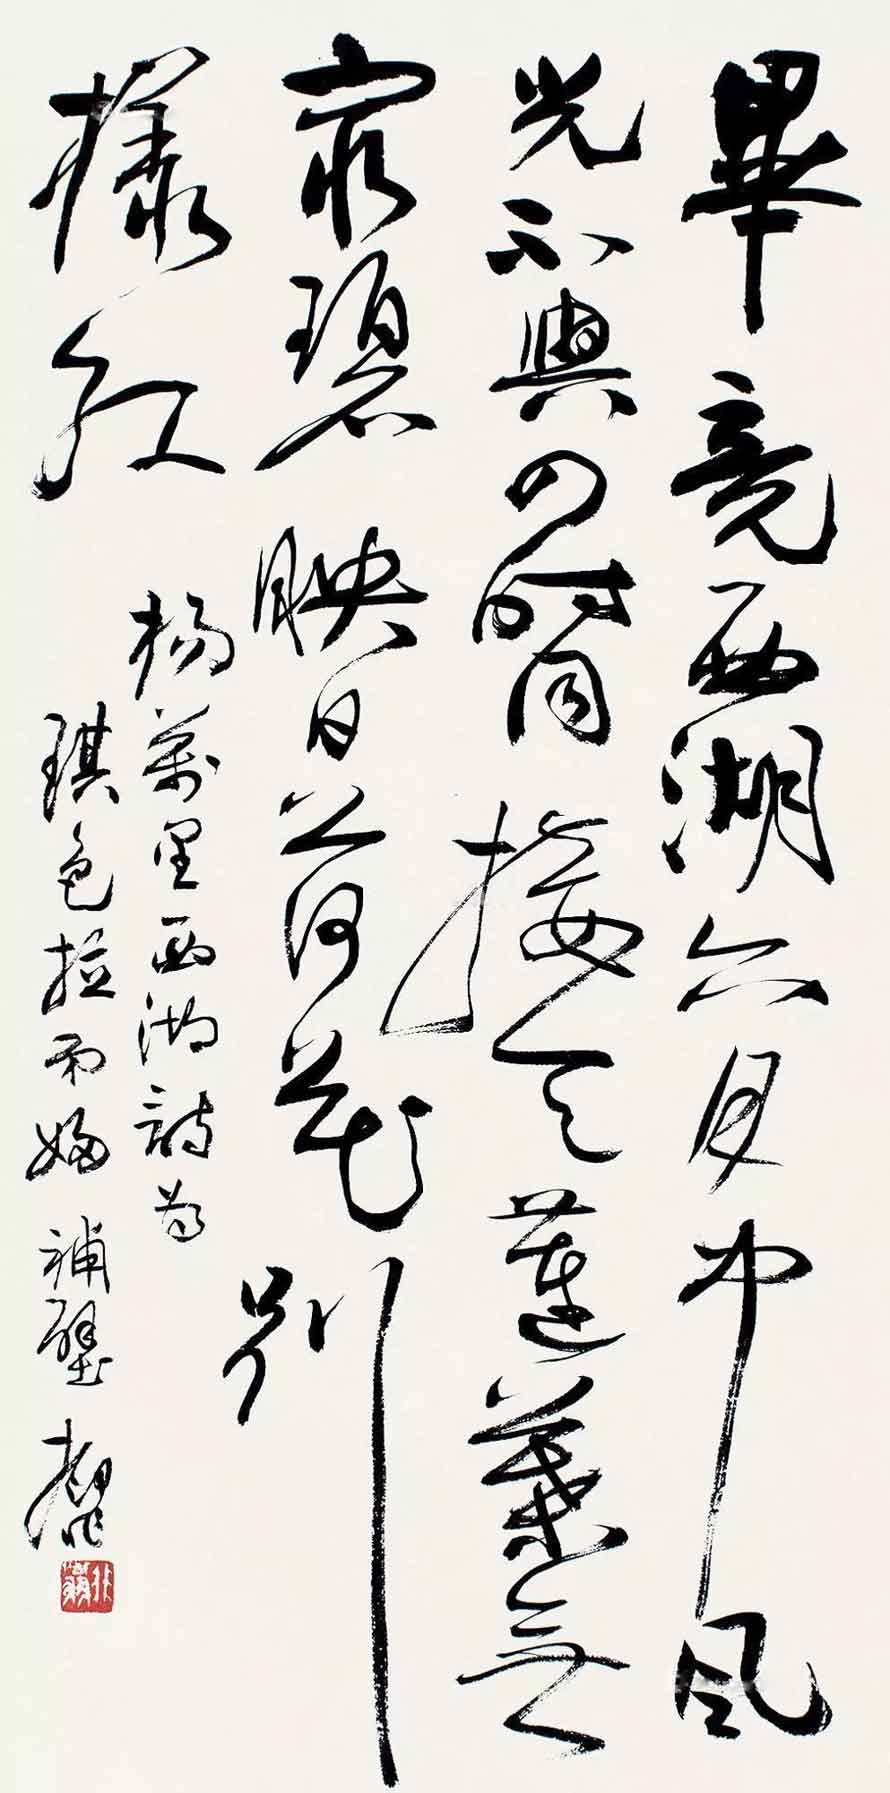 畢竟西湖六月中風
光不與四時同接天蓮葉無
窮碧映日荷花別
樣紅
楊萬里西湖詩為
琪色拉婦補壁